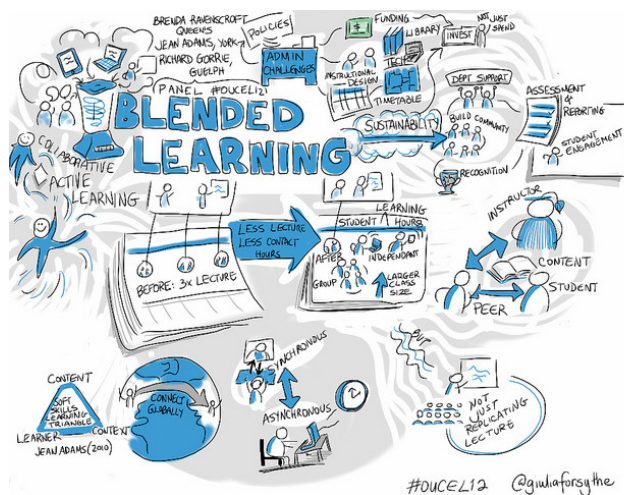 BRENDA RAVENSCROFT
QUEENS
JEAN ADAMS, YORK
RICHARD GORRIE,
GUELPH
PANEL #OUCEL12
BLENDED
LEARNING
POLICIES
ADMIN
CHALLENGES
FUNDING
LIBRARY
TECH
INSTRUCTIONAL
DESIGN
TIMETABLE
INVEST
NOT JUST
SPEND
SUSTAINABILITY
DEPT SUPPORT
BUILD COMMUNITY
RECOGNITION
ASSESSMENT
&
REPORTING
STUDENT
ENGAGEMENT
COLLABORATIVE
ACTIVE
LEARNING
BEFORE: 3x LECTURE
LESS LECTURE
LESS CONTACT
HOURS
LEARNING
STUDENT HOURS
AFTER
INDEPENDANT
GROUP
LARGER
CLASS
SIZE
INSTRUCTOR
CONTENT
STUDENT
PEER
CONTENT
SOFT
SKILLS
LEARNING
TRIANGLE
LEARNER
CONTEXT
JEAN ADAMS (2010)
CONNECT
GLOBALLY
SYNCHRONOUS
ASYNCHRONOUS
BUT
NOT
JUST
REPLICATING
LECTURE
#OUCEL12 @giuliaforsythe